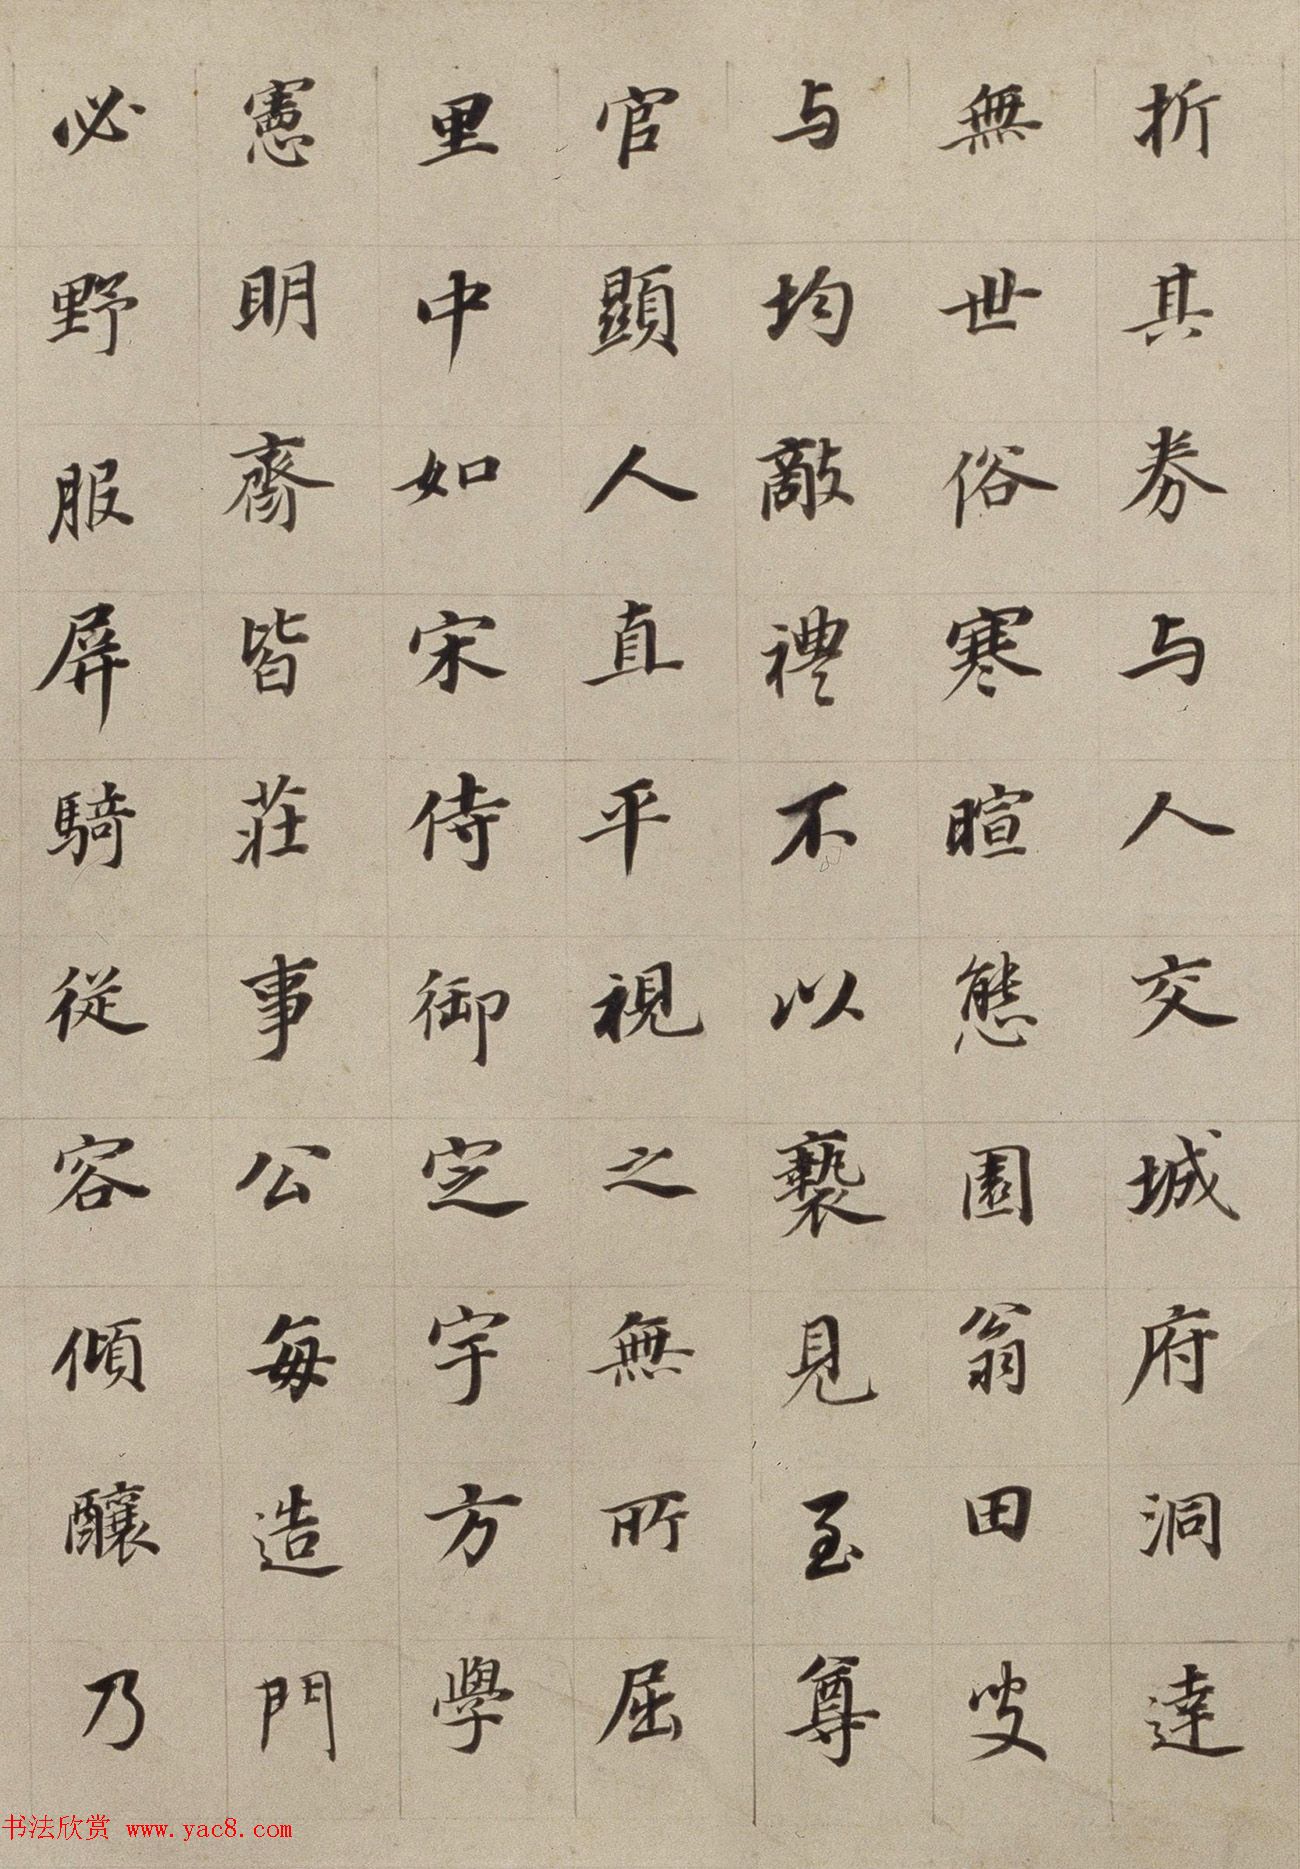 折其券与人交城府洞達
無世俗寒暄態園翁田叟
与均敵禮不以褻見至尊
官顯人直平視之無所屈
里中如宋侍御定宇方學
憲明齋皆莊事公每造門
必野服屏騎從容傾釀乃
书法欣赏 www.yac8.com